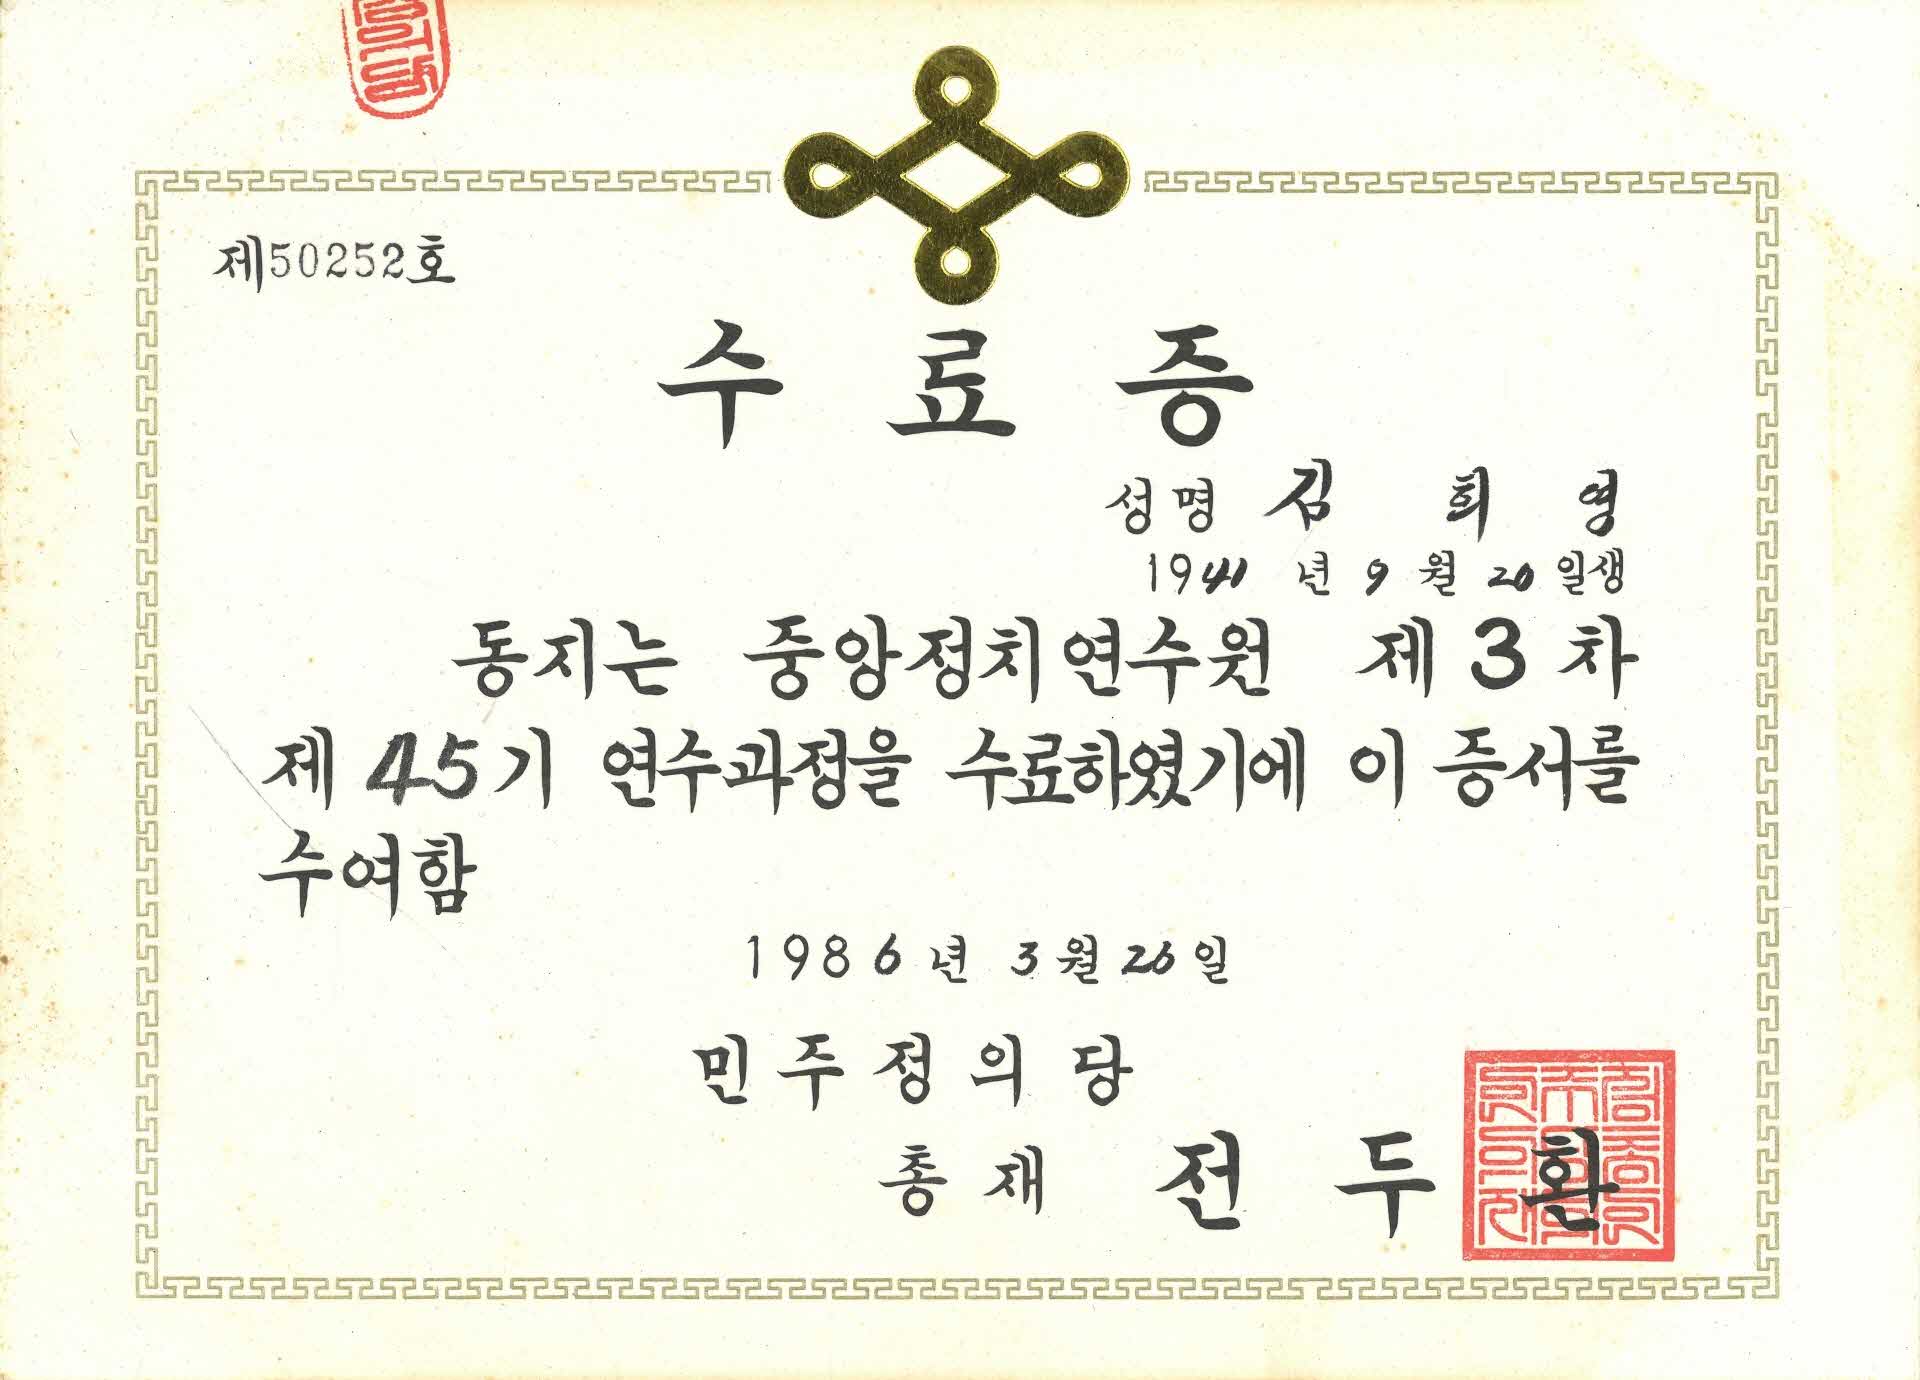 제50252호
수료증
성명 김희영
1941년 9월 20일생
동지는 중앙정치연수원 제3차
제45기 연수과정을 수료하였기에 이 증서를
수여함
1986년 3월 26일
민주정의당
총재 전두환